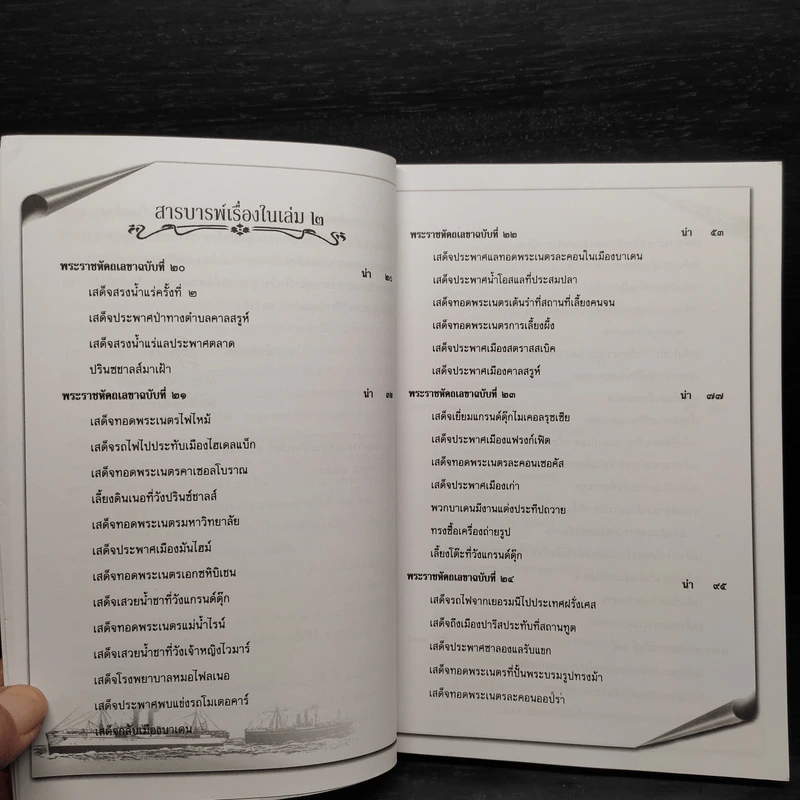 สารบารพ์เรื่องในเล่ม ๒
พระราชหัดถเลขาฉบับที่ ๒๐ น่า
เสด็จสรงน้ำแร่ครั้งที่ ๒
เสด็จประพาศป่าทางตำบลคาลสรูห์
เสด็จสรงน้ำแร่แลประพาศตลาด
ปรินซชาลส์มาเฝ้า
พระราชหัดถเลขาฉบับที่ ๒๑ น่า
เสด็จทอดพระเนตรไฟไหม้
เสด็จรถไฟไปประทับเมืองไฮเดลแบ็ก
เสด็จทอดพระเนตรคาเซอลโบราณ
เลี้ยงดินเนอที่วังปรินซ์ชาลส์
เสด็จทอดพระเนตรมหาวิทยาลัย
เสด็จประพาศเมืองมันไฮม์
เสด็จทอดพระเนตรเอกซหิบิเชน
เสด็จเสวยน้ำชาที่วังแกรนด์ดุ๊ก
เสด็จทอดพระเนตรแม่น้ำไรน์
เสด็จเสวยน้ำชาที่วังเจ้าหญิงไวมาร์
เสด็จโรงพยาบาลหมอไฟลเนอ
เสด็จประพาศพบแข่งรถโมเตอคาร์
เสด็จกลับเมืองบาเดน
พระราชหัดถเลขาฉบับที่ ๒๒ น่า ๕๓
เสด็จประพาศแลทอดพระเนตรละคอนในเมืองบาเดน
เสด็จประพาศน้ำโอสแลที่ประสมปลา
เสด็จทอดพระเนตรเต้นรำที่สถานที่เลี้ยงคนจน
เสด็จทอดพระเนตรการเลี้ยงผึ้ง
เสด็จประพาศเมืองสตราสสเบิค
เสด็จประพาศเมืองคาลสรูห์
พระราชหัดถเลขาฉบับที่ ๒๓ น่า ๗๗
เสด็จเยี่ยมแกรนด์ดุ๊กไมเคอลรุซเซีย
เสด็จประพาศเมืองแฟรงก์เฟิต
เสด็จทอดพระเนตรละคอนเซอคัส
เสด็จประพาศเมืองเก่า
พวกบาเดนมีงานแต่งประทีปถวาย
ทรงซื้อเครื่องถ่ายรูป
เลี้ยงโต๊ะที่วังแกรนด์ดุ๊ก
พระราชหัดถเลขาฉบับที่ ๒๔ น่า ๙๕
เสด็จรถไฟจากเยอรมนีไปประเทศฝรั่งเศส
เสด็จถึงเมืองปารีสประทับที่สถานทูต
เสด็จประพาศซาลองแลรับแขก
เสด็จทอดพระเนตรที่ปั้นพระบรมรูปทรงม้า
เสด็จทอดพระเนตรละคอนออปร่า